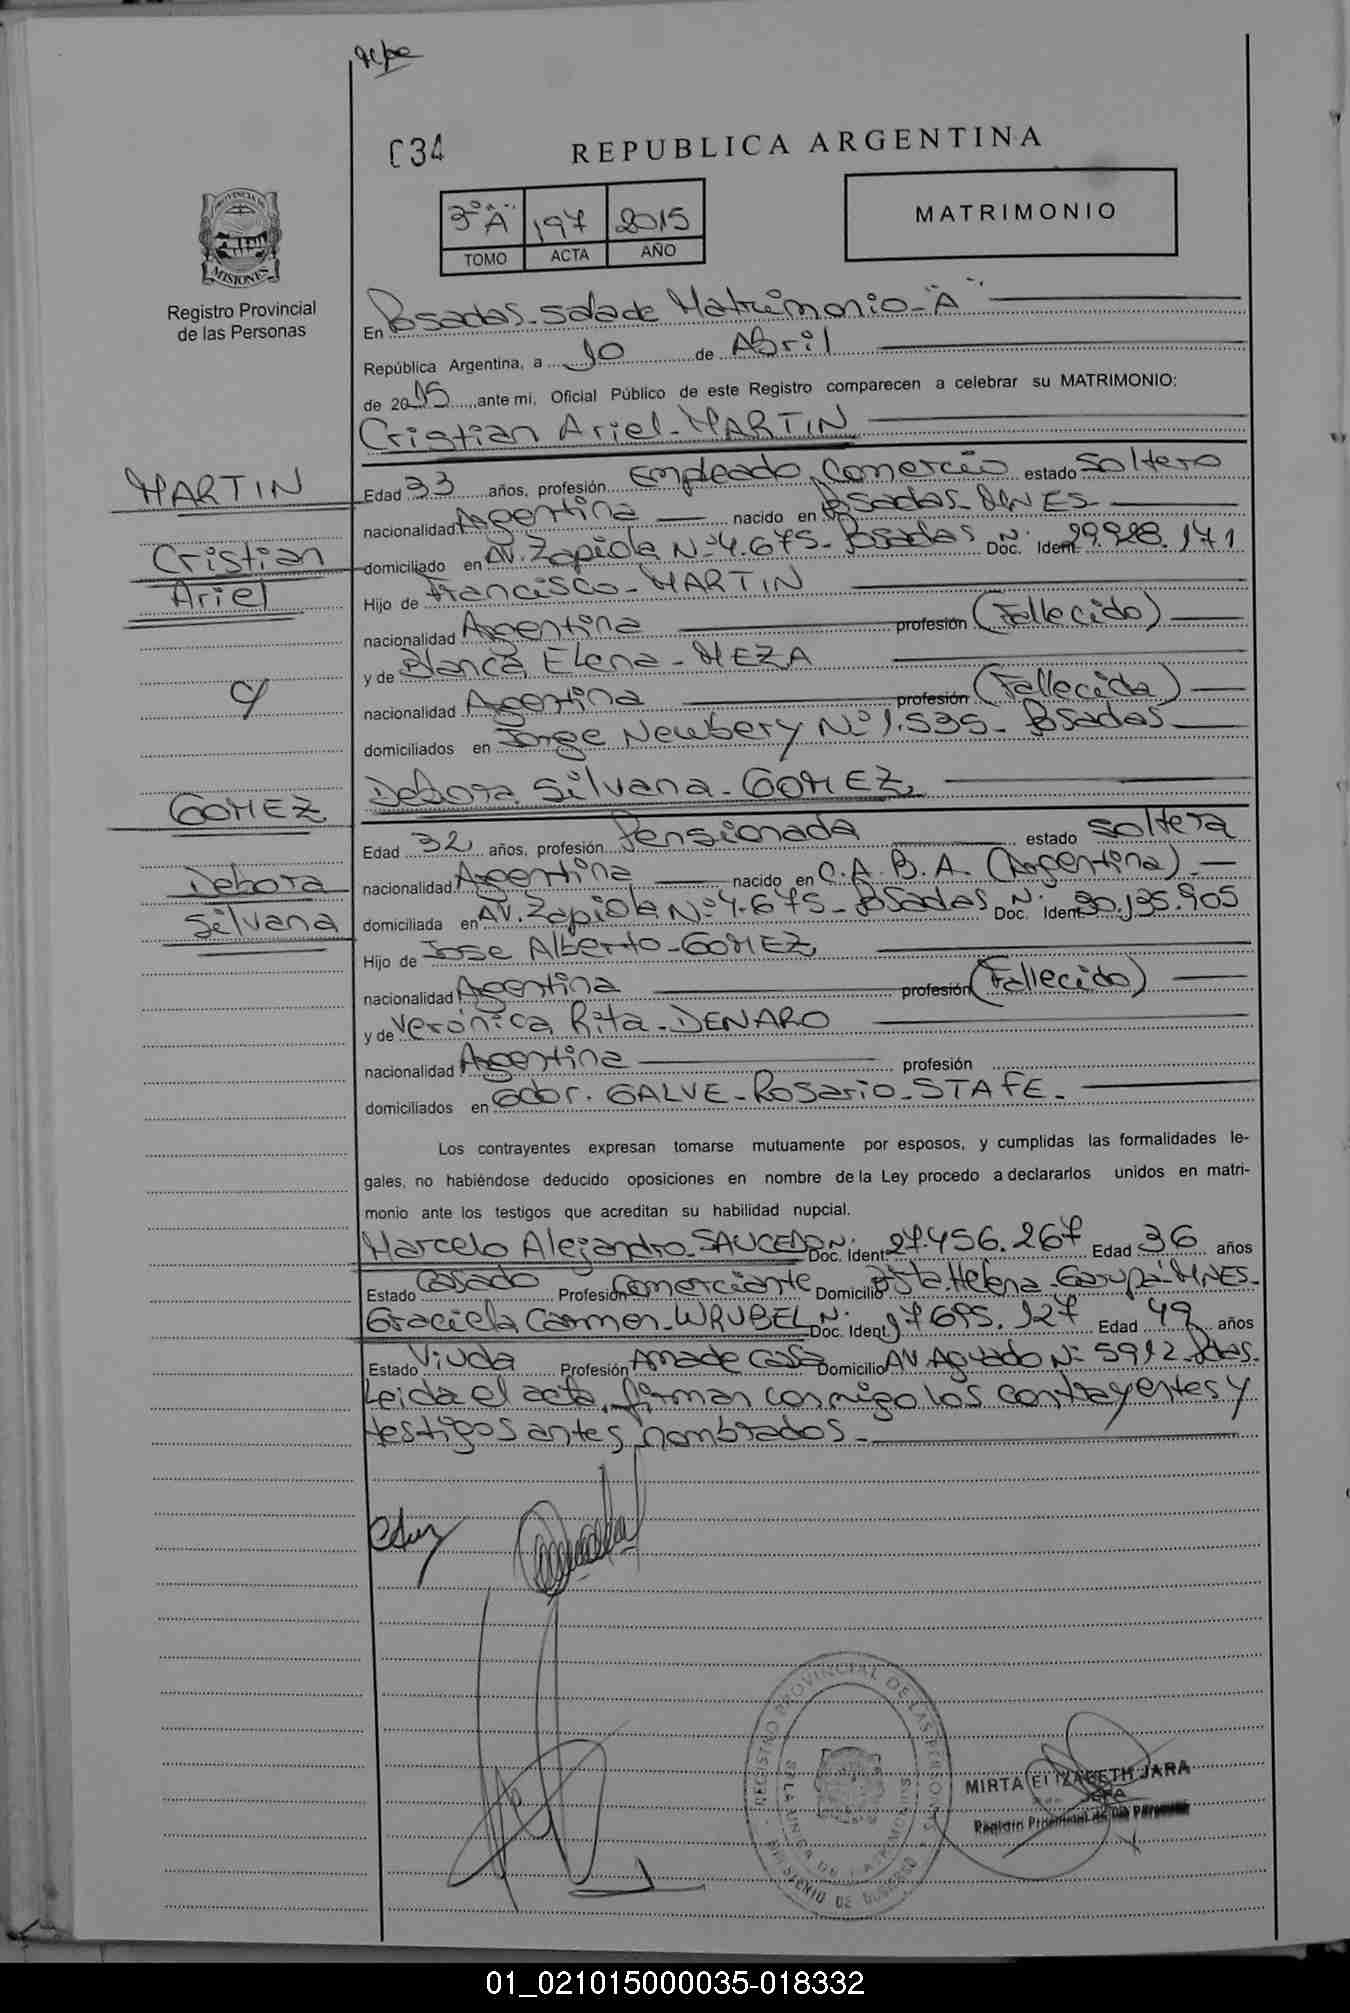 034
REPUBLICA ARGENTINA
PROVINCIA DE
MISIONES
Registro Provincial
de las Personas
3º "A" 197 2015
TOMO ACTA AÑO
MATRIMONIO
En Posadas - Sala de Matrimonio - "A"
República Argentina, a 10 de Abril
de 2015, ante mi, Oficial Público de este Registro comparecen a celebrar su MATRIMONIO:
Cristian Ariel - MARTIN
MARTIN
Cristian
Ariel
Edad 33 años, profesión Empleado Comercio estado Soltero
nacionalidad Argentina nacido en Posadas - MNES
domiciliado en AV. Zapiola Nº 4.675 - Posadas Doc. Ident. Nº 29.928.171
Hijo de Francisco - MARTIN
nacionalidad Argentina profesión (Fallecido)
y de Blanca Elena - MEZA
nacionalidad Argentina profesión (Fallecida)
domiciliados en Jorge Newbery Nº 1.535 - Posadas
c/
GOMEZ
Debora
Silvana
Debora Silvana - GOMEZ
Edad 32 años, profesión Pensionada estado Soltera
nacionalidad Argentina nacido en C.A.B.A. (Argentina)
domiciliada en AV. Zapiola Nº 4.675 - Posadas Doc. Ident. Nº 30.135.905
Hijo de Jose Alberto - GOMEZ
nacionalidad Argentina profesión (Fallecido)
y de Verónica Rita - DENARO
nacionalidad Argentina profesión
domiciliados en Gdor. GALVE - Rosario - STA FE -
Los contrayentes expresan tomarse mutuamente por esposos, y cumplidas las formalidades le-
gales, no habiéndose deducido oposiciones en nombre de la Ley procedo a declararlos unidos en matri-
monio ante los testigos que acreditan su habilidad nupcial.
Marcelo Alejandro - SAUCEDO Doc. Ident. Nº 27.456.267 Edad 36 años
Estado Casado Profesión Comerciante Domicilio Sta. Helena - Garupá - MNES -
Graciela Carmen - WRUBEL Doc. Ident. Nº 17.695.127 Edad 49 años
Estado Viuda Profesión Ama de Casa Domicilio AV. Aguado Nº 5912 - Pdas.
Leida el acta, firman conmigo los contrayentes y
testigos antes nombrados -
REGISTRO PROVINCIAL DE LAS PERSONAS
MINISTERIO DE GOBIERNO
MIRTA ELIZABETH JARA
JEFA
Registro Provincial de las Personas
01_021015000035-018332